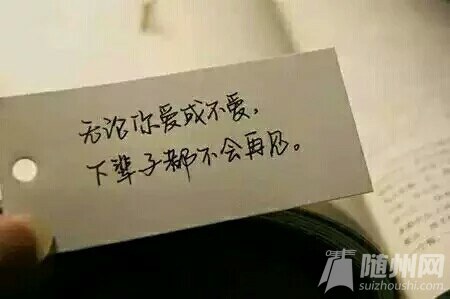 无论你爱或不爱，
下辈子都不会再见。
随州网
suizhoushi.com